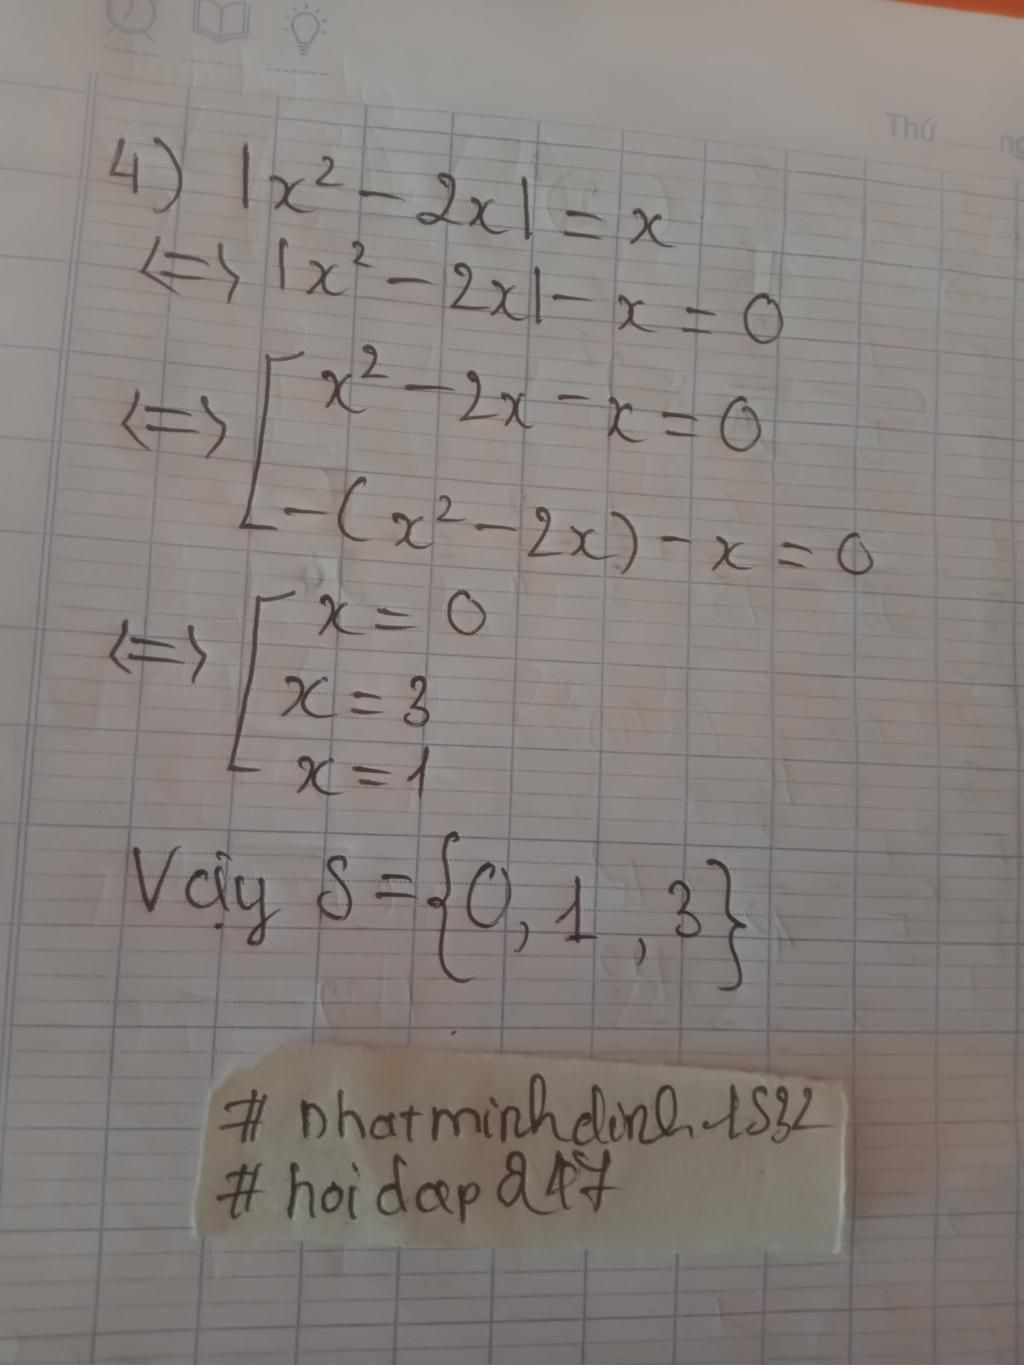 Thứ ...... ng
4) |x² - 2x| = x
<=> |x² - 2x| - x = 0
<=> [ x² - 2x - x = 0
-(x² - 2x) - x = 0
<=> [ x = 0
x = 3
x = 1
Vậy S = {0, 1, 3}
# nhatminhdinh1532
# hoidap247